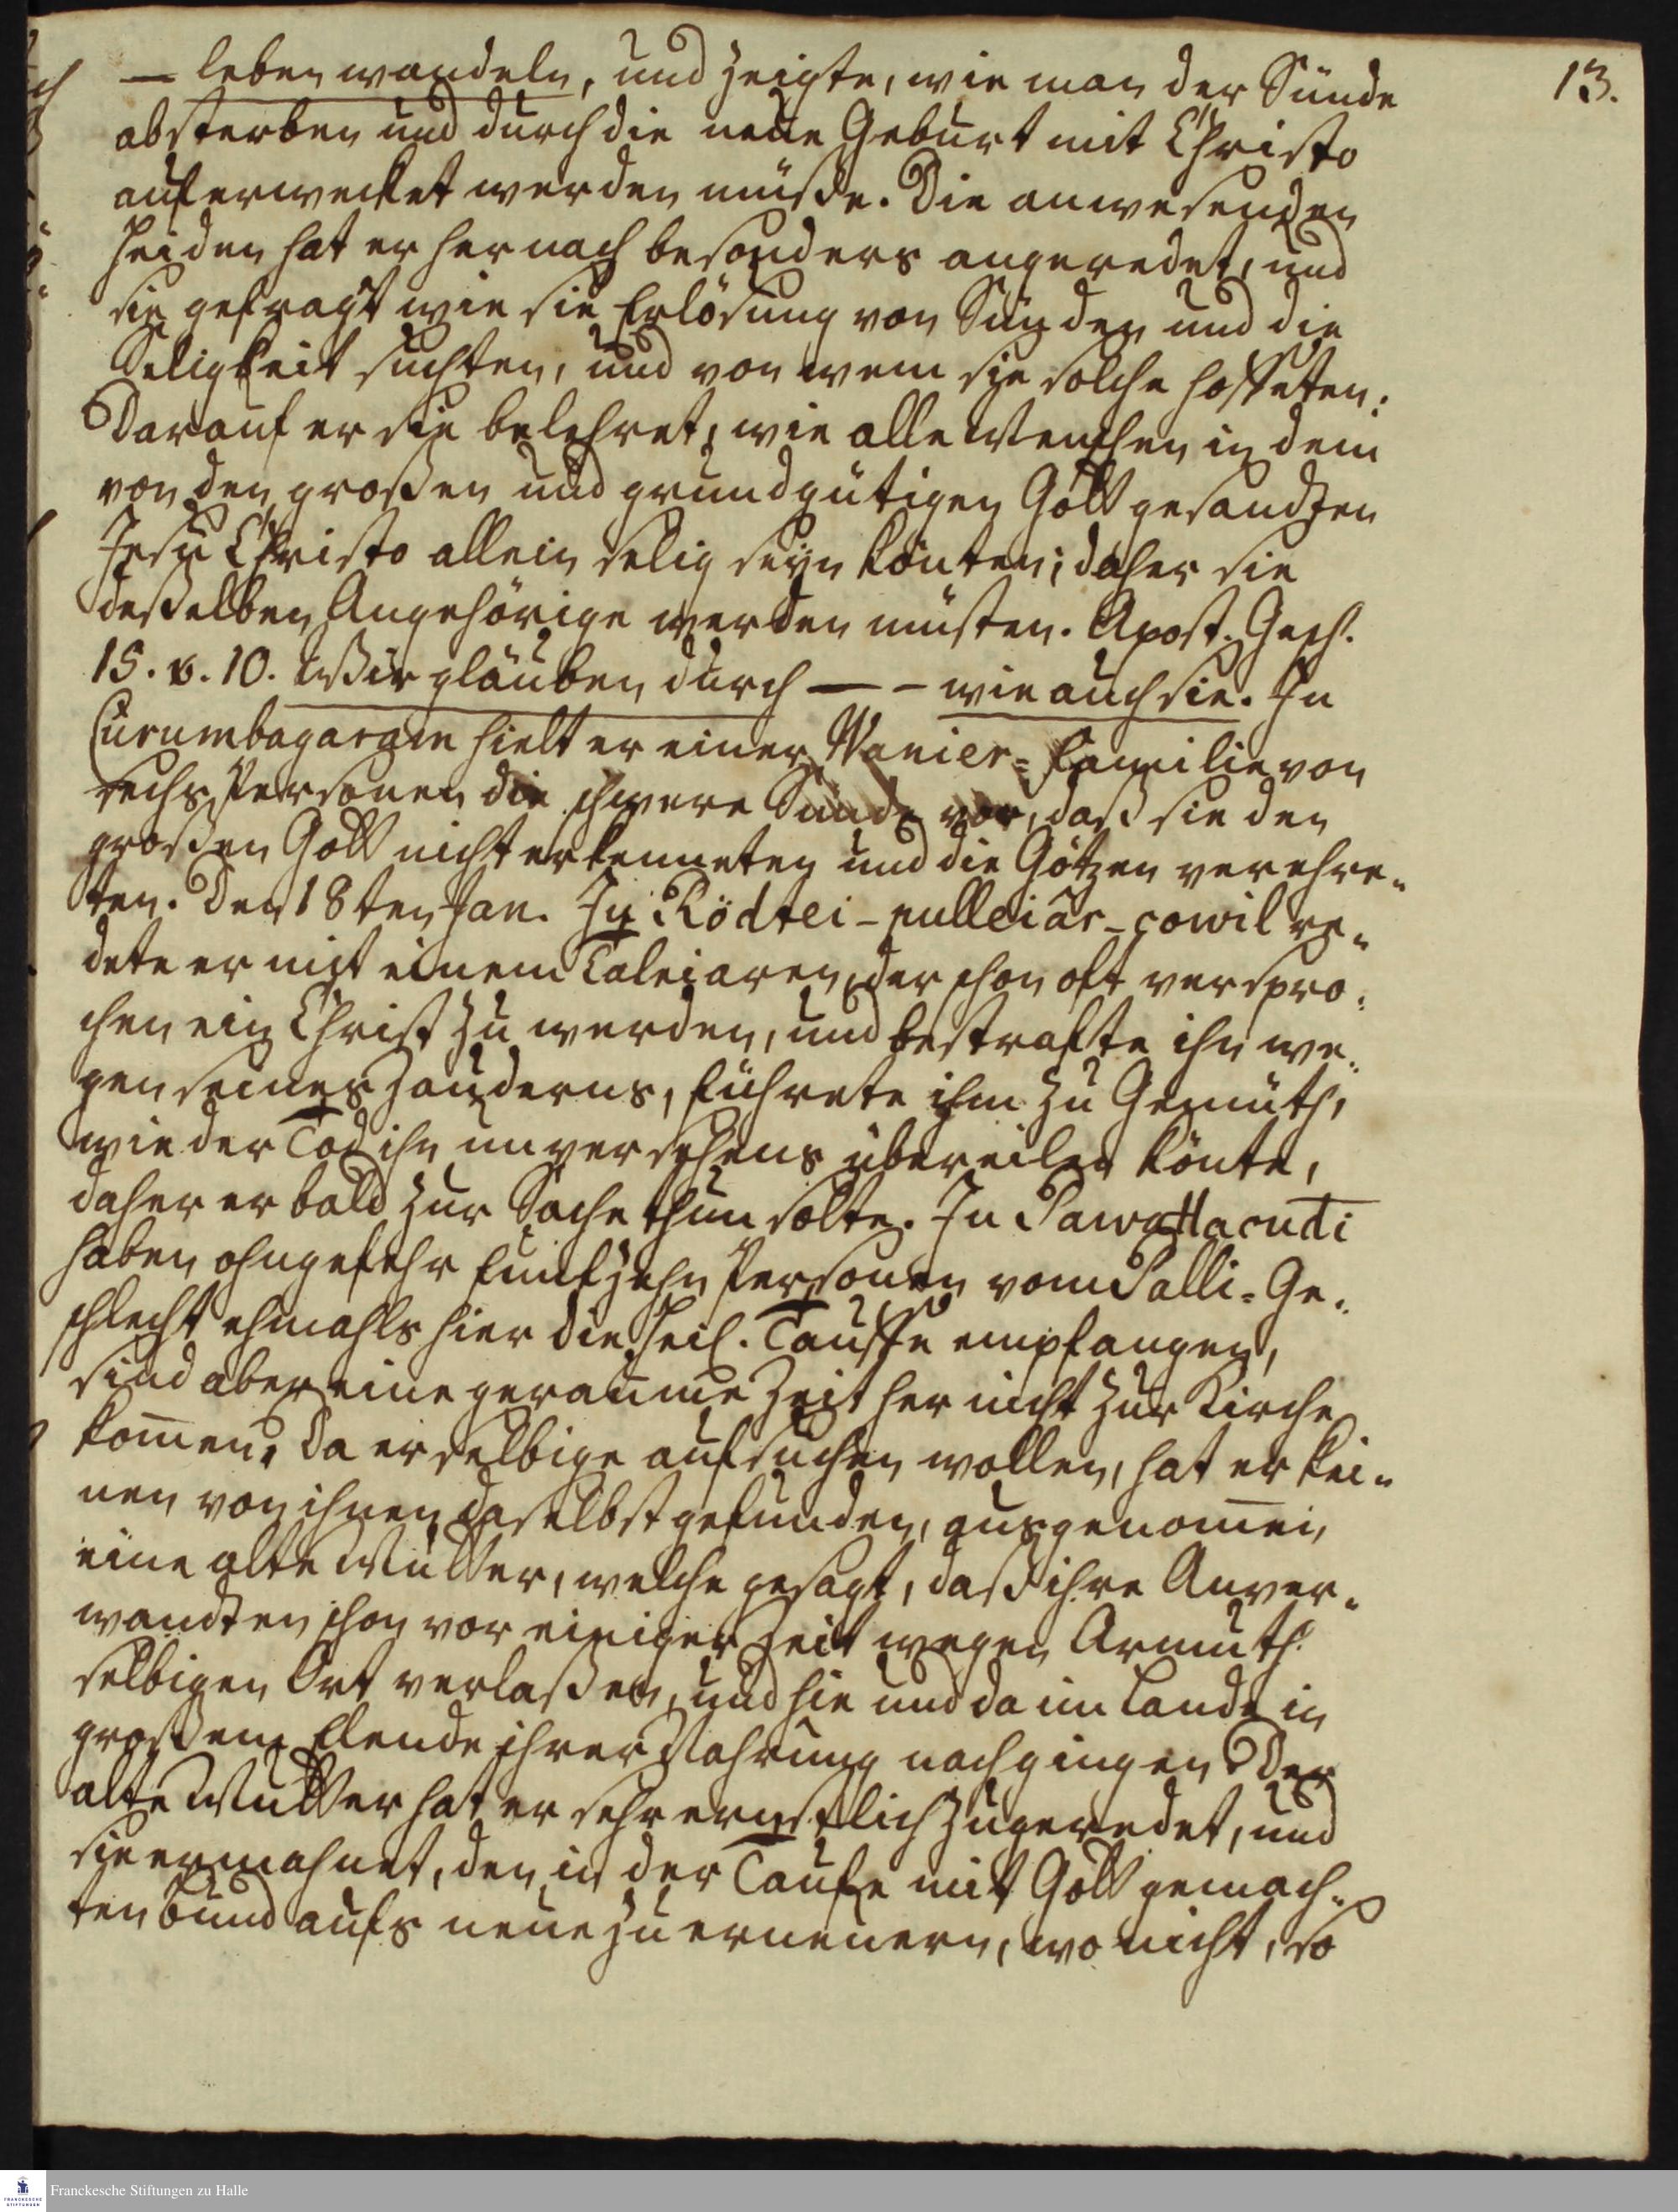 13.
— leben wandeln, und zeigte, wie man der Sünde
absterben und durch die neue Geburt mit Christo
auferwecket werden müsse. Die anwesenden
Heiden hat er hernach besonders angeredet, und
sie gefragt wie sie Erlösung von Sünden und die
Seligkeit suchten, und von wem sie solche hoffeten:
Darauf er sie belehret, wie alle Menschen in dem
von den großen und grundgütigen Gott gesandten
Jesu Christo allein selig seyn könten; daher sie
deßelben Angehörige werden müsten. Apost. Gesch.
15. v. 10. Wir gläuben durch — – wie auch sie. In
Curumbagaram hielt er einer Wanier-Familie von
sechs Personen die schwere Sünde vor, daß sie den
großen Gott nicht erkenneten und die Götzen verehre-
ten. Den 18ten Jan. In Rödtei-pulleiâr-cowil re-
dete er mit einem Taleiaren, der schon oft verspro-
chen ein Christ zu werden, und bestrafte ihn we-
gen seines Zauderns, führete ihm zu Gemüth,
wie der Tod ihn unversehens übereilen könte,
daher er bald zur Sache thun solte. In Sawattacudi
haben ohngefehr funfzehn Personen vom Palli-Ge-
schlecht ehmahls hier die Heil. Tauffe empfangen,
sind aber eine geraume Zeit her nicht zur Kirche
kom̄en. Da er selbige aufsuchen wollen, hat er kei-
nen von ihnen daselbst gefunden, ausgenom̄en
eine alte Mutter, welche gesagt, daß ihre Anver-
wandten schon vor einiger Zeit wegen Armuth
selbigen Ort verlaßen, und hie und da im Lande in
großem Elende ihrer Nahrung nachgingen. Der
alte Mutter hat er sehr ernstlich zugeredet, und
sie ermahnet, den in der Taufe mit Gott gemach-
ten Bund aufs neue zu erneuern, wo nicht, so
Franckesche Stiftungen zu Halle